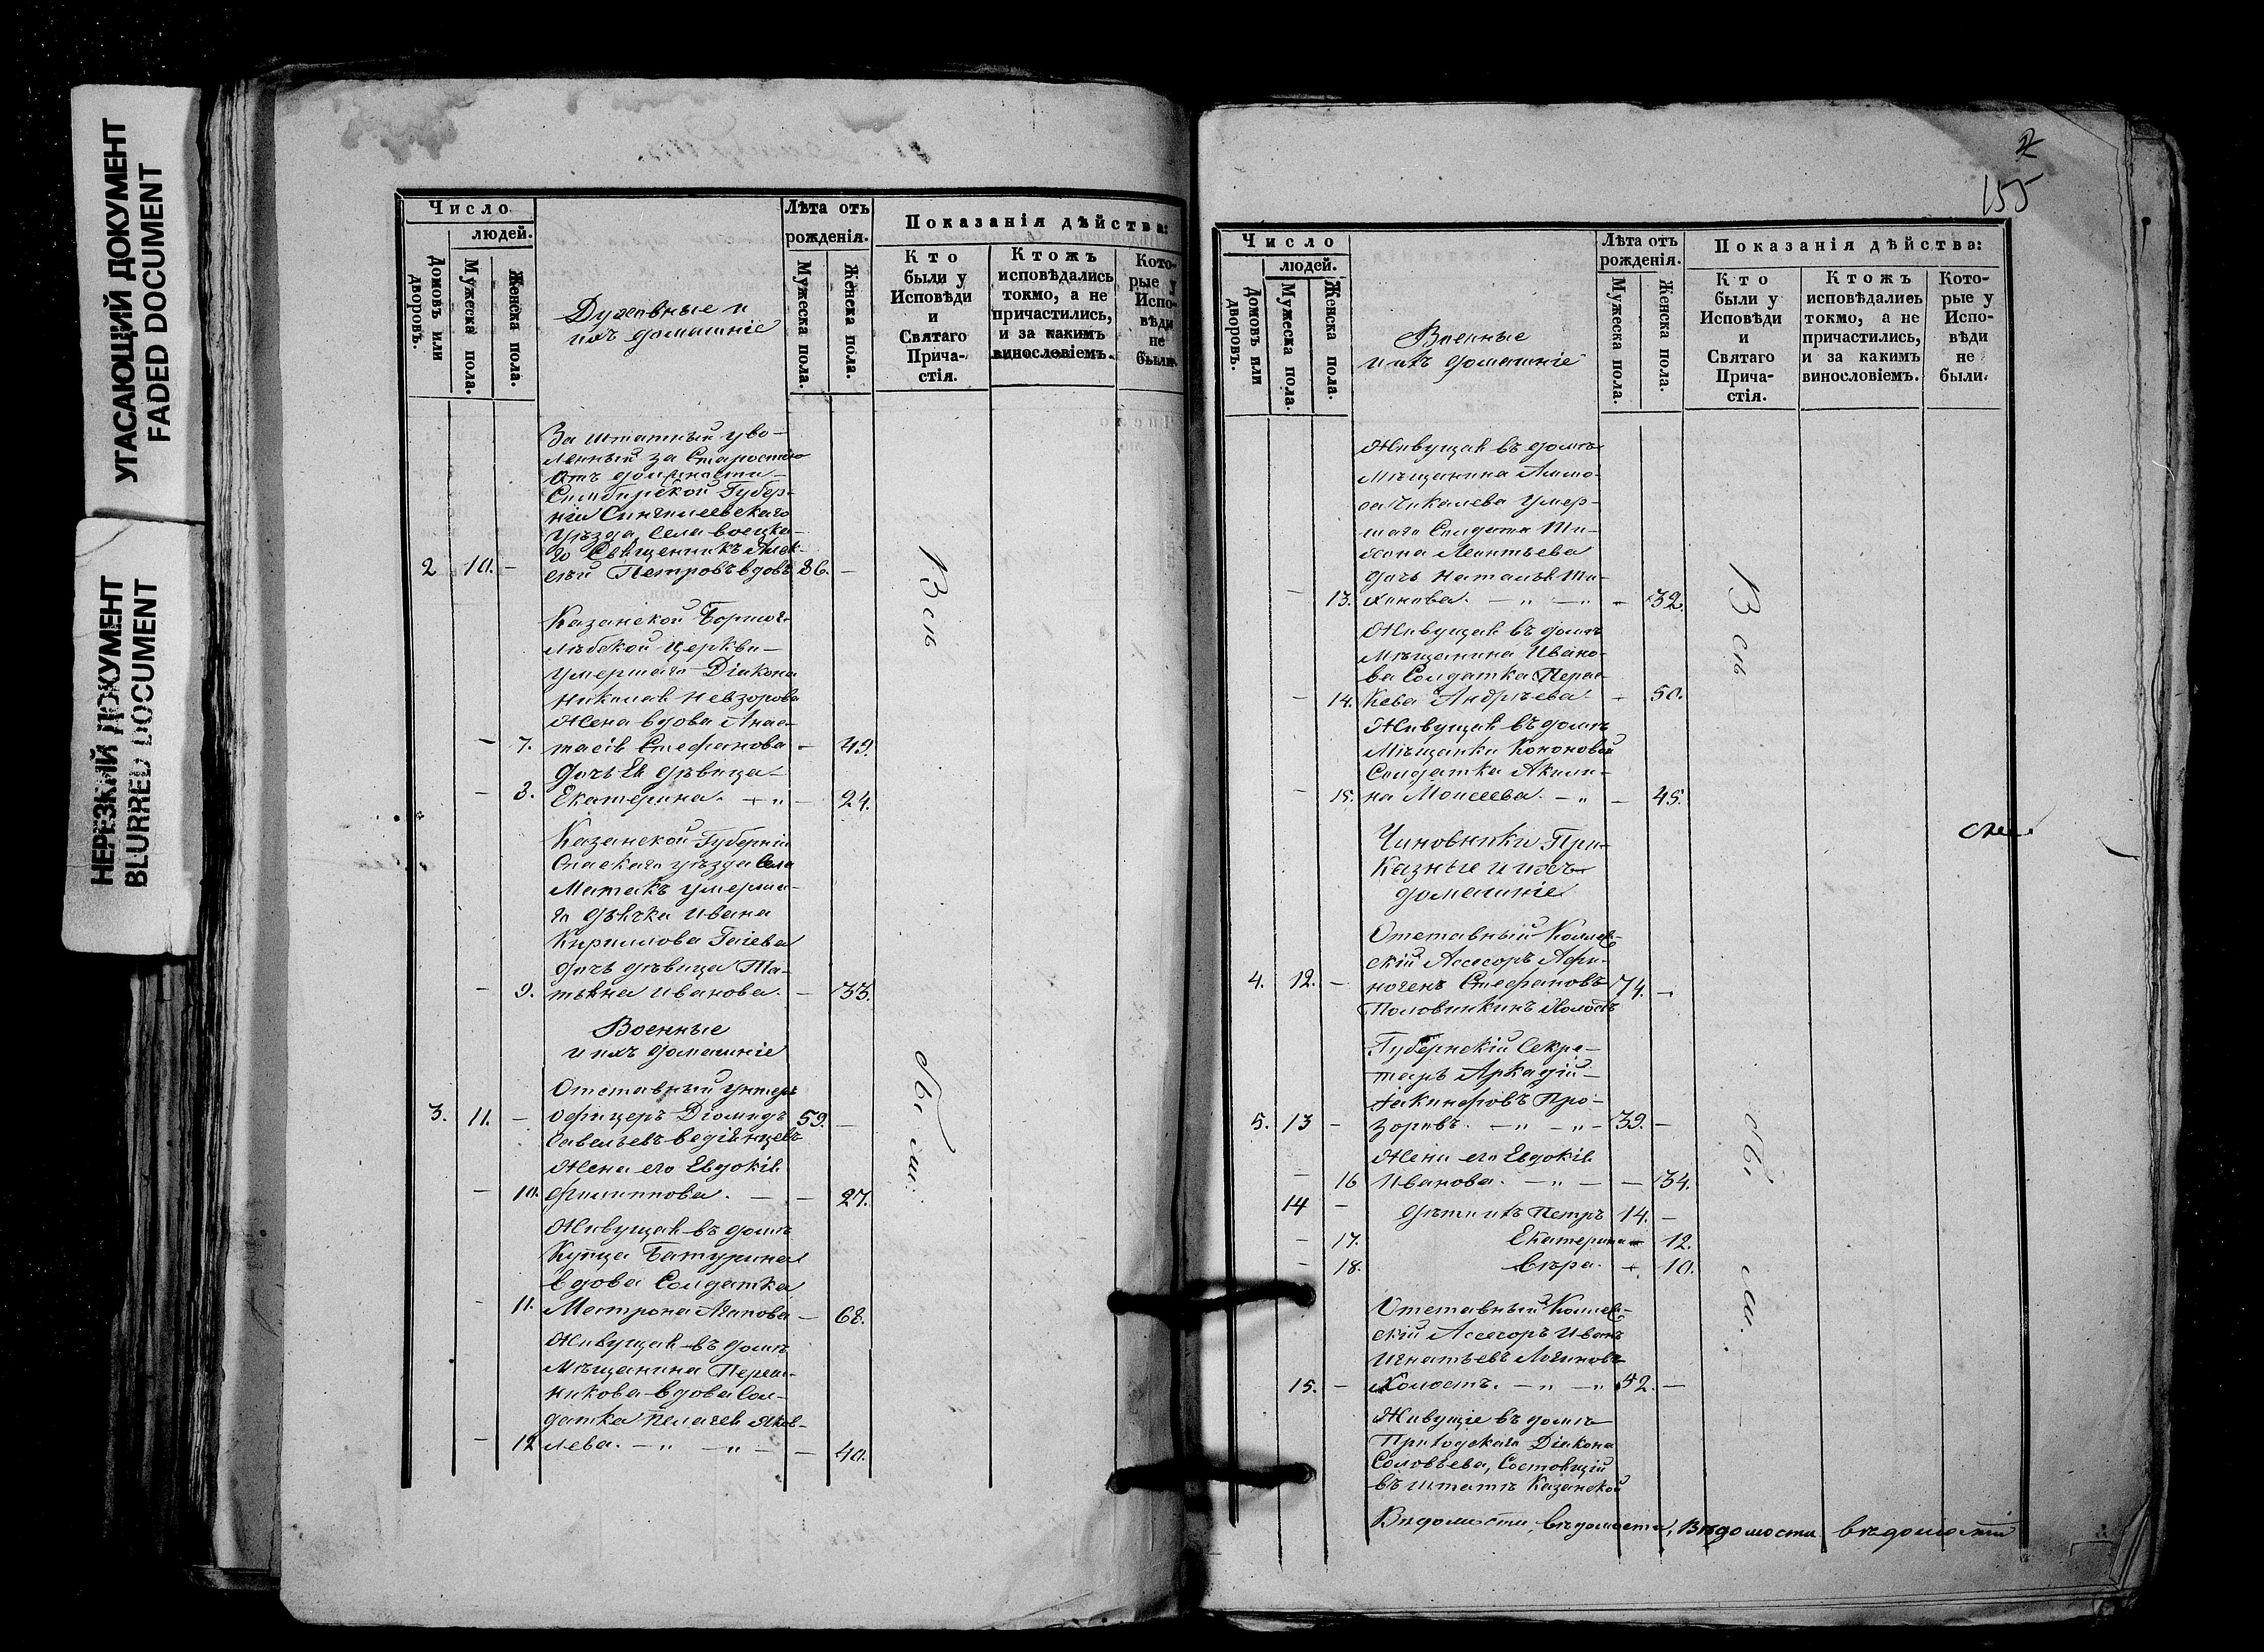 УГАСАЮЩИЙ ДОКУМЕНТ
FADED DOCUMENT
НЕРЕЗКИЙ ДОКУМЕНТ
BLURRED DOCUMENT
Число
людей.
Домовъ или дворовъ.
Мужеска пола.
Женска пола.
Духовные и
ихъ домашніе
Лѣта отъ
рожденія.
Мужеска пола.
Женска пола.
Показанія дѣйства:
Кто
были у
Исповѣди
и
Святаго
Прича-
стія.
Ктожъ
исповѣдались
токмо, а не
причастились,
и за какимъ
винословіемъ.
Кото-
рые у
Испо-
вѣди
не
были.
За штатный уво-
ленный за Старостію
отъ должности
Симбирской Губер-
ніи Сингилеевскаго
Уѣзда, Села
го Священникъ Алек-
2 10. – сѣй Петровъ вдовъ 86. –
Казанской Борисог-
лѣбской Церкви
умершаго Діакона
Николая Невзорова
Жена вдова Анас-
– 7. тасія Стефанова – 49.
дочь Ея дѣвица
– 8. Екатерина. – „ – 24.
Казанской Губерніи
Спаскаго уѣзда Села
Матакъ умерша-
го дьячка Ивана
Кириллова
дочь дѣвица Та-
– 9. тьяна Иванова. – 33.
Военные
и ихъ домашніе
Отставный Унтеръ
3. 11. – офицеръ Діомидъ 59. –
Савельевъ
Жена его Евдокія
– 10. Филиппова. – – 27.
Живущая въ домѣ
Купца Батурина
вдова Солдатка
– 11. Матрона Агапова – 68.
Живущая въ домѣ
Мѣщанина
никова вдова Сол-
датка Пелагея Яков-
– 12 лева. – „ – „ – – 40.
Всѣ
были.
2
155
Число
людей.
Домовъ или дворовъ.
Мужеска пола.
Женска пола.
Военные
и ихъ домашніе
Лѣта отъ
рожденія.
Мужеска пола.
Женска пола.
Показанія дѣйства:
Кто
были у
Исповѣди
и
Святаго
Прича-
стія.
Ктожъ
исповѣдались
токмо, а не
причастились,
и за какимъ
винословіемъ.
Кото-
рые у
Испо-
вѣди
не
были.
Живущая въ домѣ
Мѣщанина
Чикалева Умер-
шаго Солдата Ти-
хона Леонтьева
дочь Наталья Ти-
– 13. хонова. – „ – „ – 32.
Живущая въ домѣ
Мѣщанина Ивано-
ва Солдатка Парас-
– 14. кева Андрѣева. – 50.
Живущая въ домѣ
Мѣщанки Кононовой
Солдатка Акили-
– 15. на Моисеева. – „ – 45.
Чиновники При-
казные и ихъ
домашніе
Отставный Коллеж-
скій Ассесоръ Афи-
4. 12. – ногенъ Стефановъ 74. –
Половинкинъ Холостъ
Губернскій Секре-
таръ Аркадій
Іакинфовъ Про-
5. 13 – зоровъ. – „ – „ – 39. –
Жена его Евдокія
– 16 Иванова. – „ – – 34.
14 – дѣти ихъ Петръ 14. –
– 17. Екатерина – 12.
– 18. Вѣра. – 10.
Отставный Коллеж-
скій Ассесоръ Иванъ
Игнатьевъ Логиновъ
15. – Холостъ. – „ – „ 52. –
Живущіе въ домѣ
Приходскаго Діакона
Соловьева, Состоящій
въ штатѣ Казанской
Вѣдомости, вѣдомости, Вѣдомости вѣдомости
Всѣ
были.